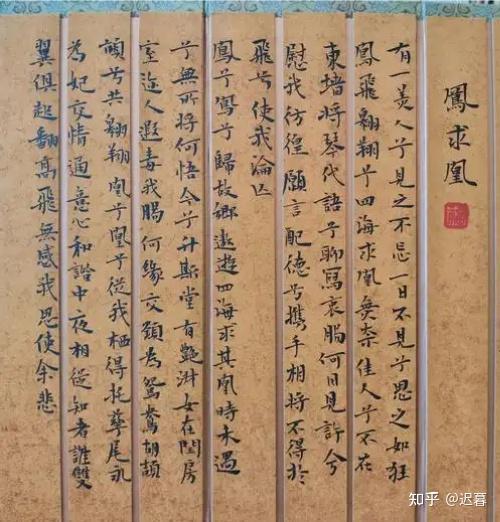 鳳求凰
有一美人兮見之不忘一日不見兮思之如狂
鳳飛翱翔兮四海求凰無奈佳人兮不在
東墙將琴代語兮聊寫衷腸何日見許兮
慰我彷徨願言配德兮攜手相將不得於
飛兮使我淪亡
鳳兮鳳兮歸故鄉遨遊四海求其凰時未遇
兮無所將何悟今兮升斯堂有艷淑女在閨房
室邇人遐毒我腸何緣交頸為鴛鴦胡頡
頏兮共翱翔凰兮凰兮從我棲得托孳尾永
為妃交情通意心和諧中夜相從知者誰雙
翼俱起翻高飛無感我思使余悲
知乎 @迟暮